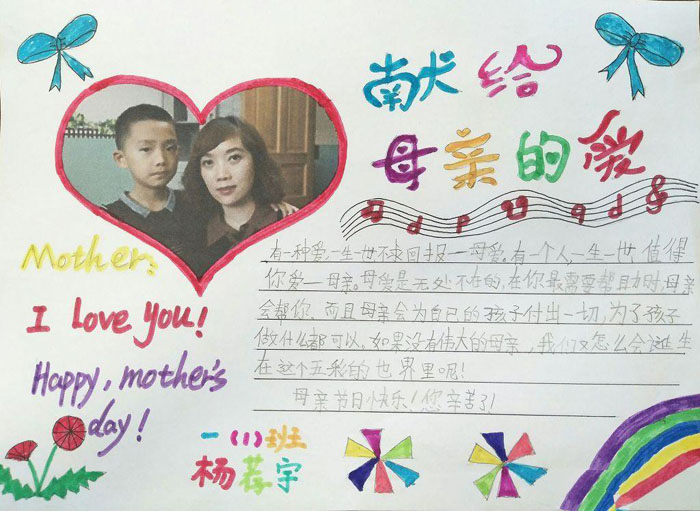 献给
母亲的爱
Mother:
I love you!
Happy, mother's
day!
有一种爱,一生一世不求回报——母爱。有一个人,一生一世,值得
你爱——母亲。母爱是无处不在的,在你最需要帮助时,母亲
会帮你。而且母亲会为自己的孩子付出一切,为了孩子
做什么都可以。如果没有伟大的母亲,我们又怎么会诞生
在这个五彩的世界里呢!
母亲节日快乐!您辛苦了!
一(1)班
杨荐宇